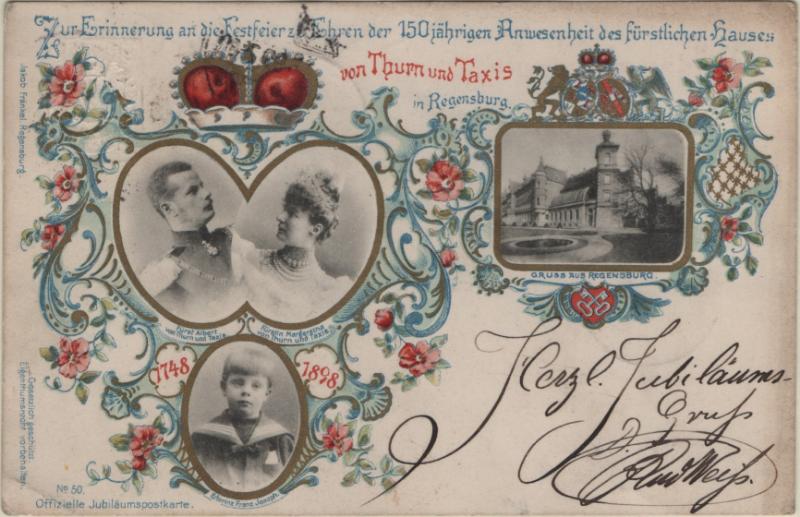 Zur Erinnerung an die Festfeier zu Ehren der 150jährigen Anwesenheit des fürstlichen Hauses
von Thurn und Taxis
in Regensburg.
Jakob Fränkel, Regensburg.
Fürst Albert
von Thurn und Taxis
Fürstin Margaretha
von Thurn und Taxis
GRUSS AUS REGENSBURG.
1748
1898
Franz Joseph
Herzl. Jubiläums-
Gruß
Weiß.
Gesetzlich geschützt.
Eigenthumsrecht vorbehalten.
No 50.
Offizielle Jubiläumspostkarte.